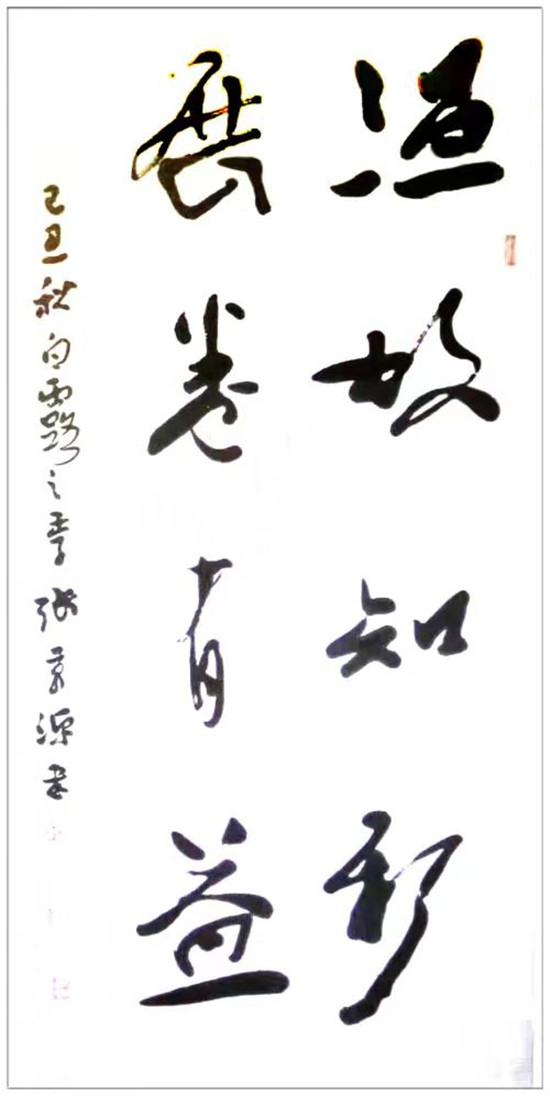 温故知新
展卷有益
己丑秋白露之季张京源书